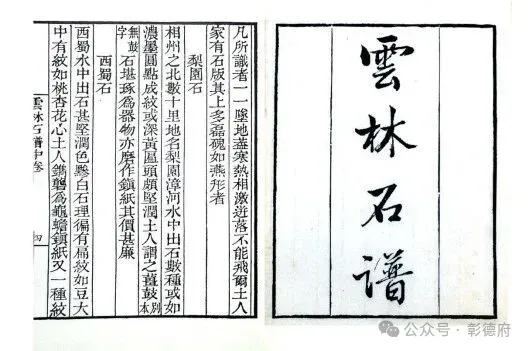 雲林石譜
凡所識者一一墜地蓋寒熱相激迸落不能飛爾土人
家有石版其上多磊磈如燕形者
梨園石
相州之北數十里地名梨園漳河水中出石數種或如
濃墨圓點成紋或深黃匾頭頗堅潤土人謂之薑鼓別本
無鼓字石堪琢爲器物亦磨作鎭紙其價甚廉
西蜀石
西蜀水中出石甚堅潤色黲白石理徧有扁紋如豆大
中有紋如桃杏花心土人鐫礱爲龜蟾鎭紙又一種紋
雲林石譜中卷 四
公众号·彰德府